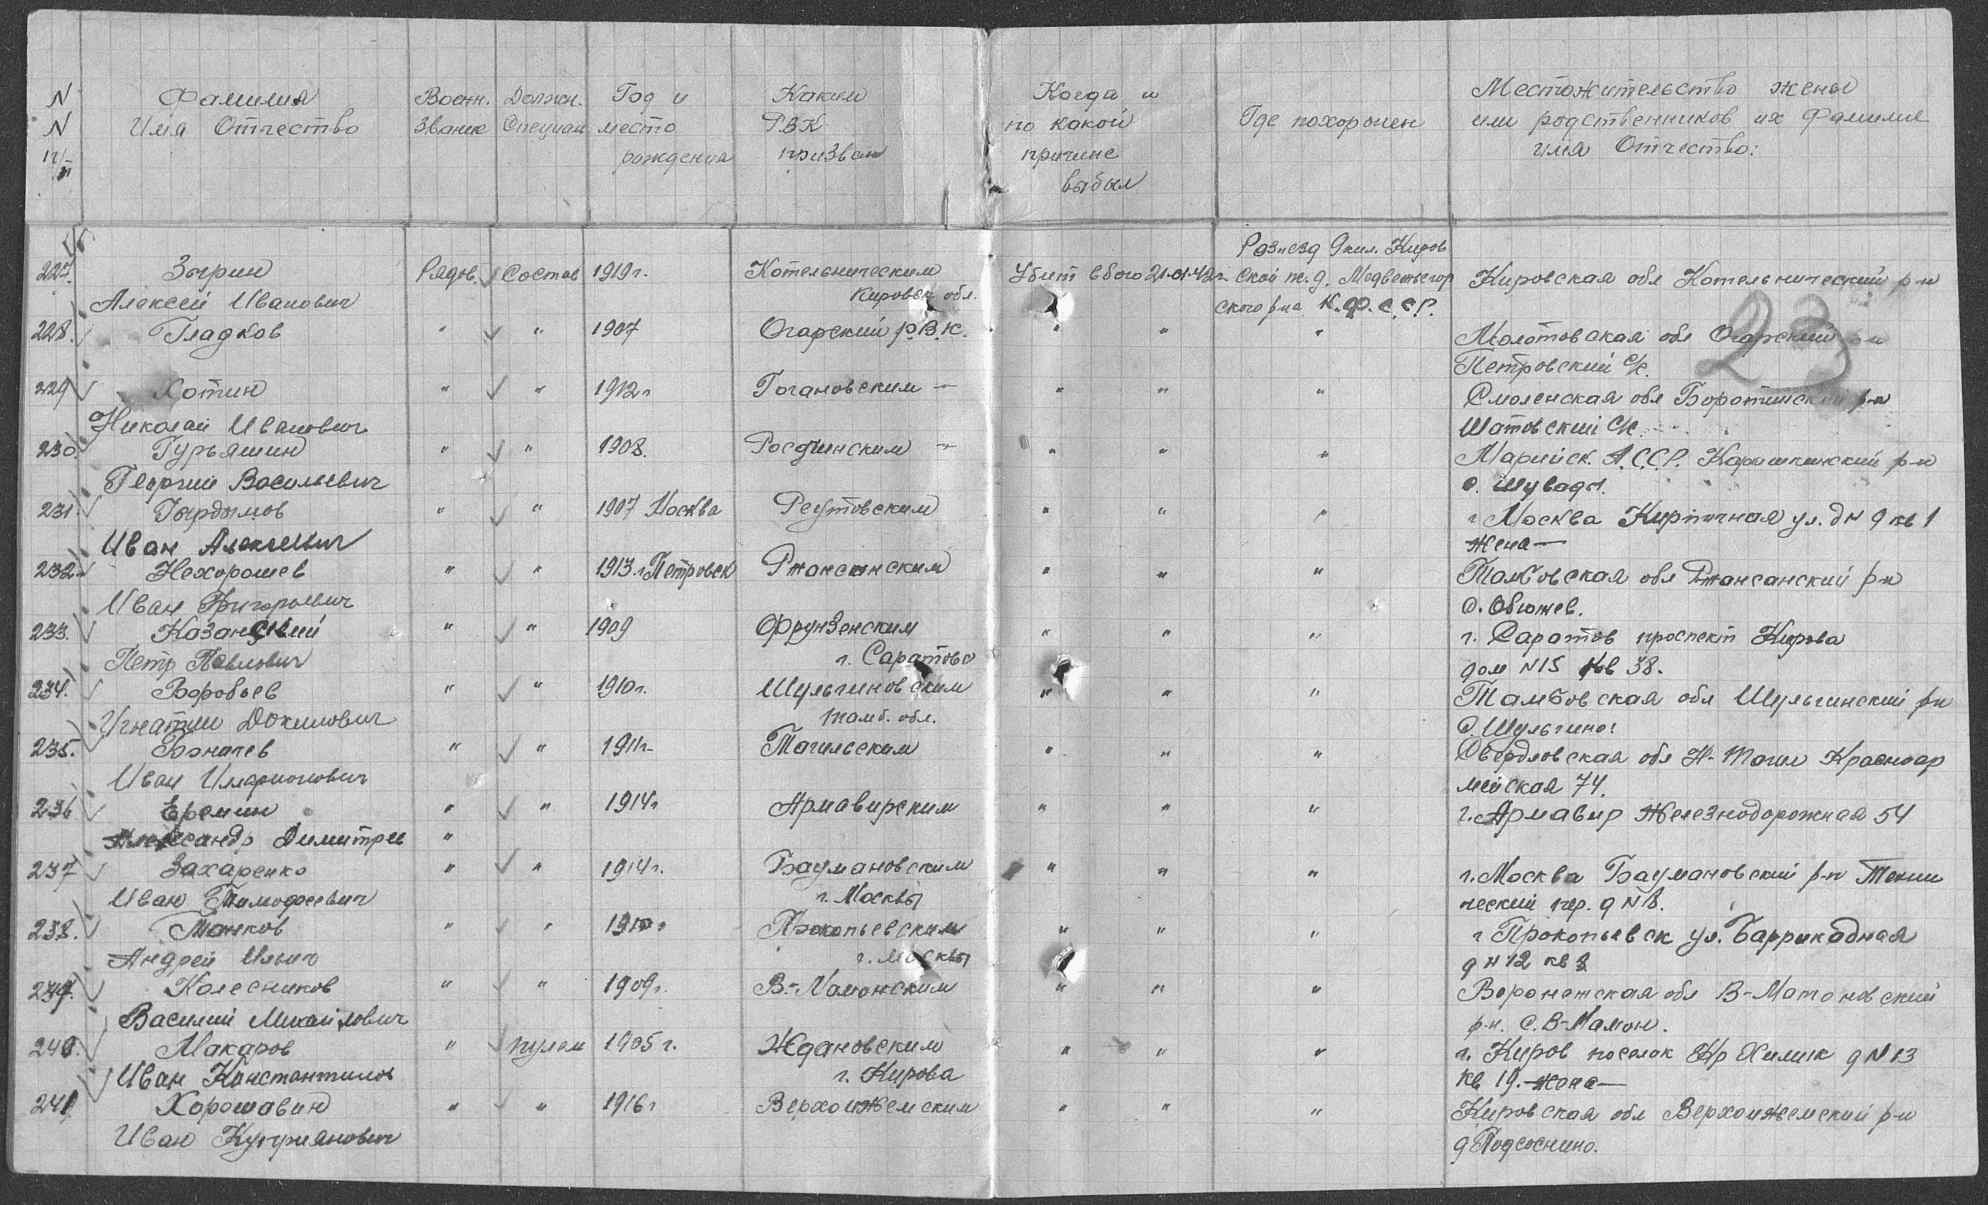 N N п/п
Фамилия Имя Отчество
Воен. Звание
Должн. Специал
Год и место рождения
Каким РВК призван
Когда и по какой причине выбыл
Где похоронен
Местожительство жены или родственников их Фамилия имя Отчество:
227. Зырин Рядов. Состав 1919 г. Котельническим Убит в бою 21-01-42 г. Разъезд 9 кил. Киров
Алексей Иванович Кировск обл. ской ж.д. Медвежьегор Кировская обл Котельнический р-н
ского р-на К.Ф.С.С.Р.
23
228. Гладков " " 1907 Очерский Р.В.К. " " " Молотовская обл Очерский р-н
Петровский с/с.
229 Хотин " " 1912 г " " " Смоленская обл
Николай Иванович с/с.
230. Гурьяшин " " 1908. " " " Марийск. А.С.С.Р. р-н
Георгий Васильевич
231. " " 1907 Москва Реутовским " " " г Москва Кирпичная ул. д N 9 кв 1
Иван Алексеевич Жена —
232. Нехорошев " " 1913 г. Петровск " " " Тамбовская обл р-н
Иван Григорьевич
233. Казанский " " 1909 Фрунзенским " " " г. Саратов проспект Кирова
Петр Павлович г. Саратова дом N 15 кв 38.
234. Воробьев " " 1910 г. Шульгиновским " " " Тамбовская обл Шульгинский р-н
Игнатий тамб. обл. с. Шульгино
235. " " 1911 г Тагильским " " " Свердловская обл Н-Тагил Красноар
Иван Иларионович мейская 74.
236 Еремин " " 1914 г Армавирским " " " г. Армавир Железнодорожная 54
Александр Димитрев "
237 Захаренко " " 1914 г. Баумановским " " " г. Москва Баумановский р-н
Иван Тимофеевич г. Москвы пер. д N 8.
238. " " Прокопьевским " " " г Прокопьевск ул. Баррикадная
Андрей Ильич г. Москвы д N 12 кв
239. Колесников " " 1909 г. В-Мамонским " " " Воронежская обл В-Мамоновский
Василий Михайлович р-н. с. В-Мамон.
240. Макаров " пулем 1905 г. Ждановским " " " г. Киров поселок Кр Химик д N 13
Иван Константинов г. Кирова кв 19. — жена —
241 Хорошавин " " 1916 г Верхошижемским " " " Кировская обл Верхошижемский р-н
Иван Куприянович д Подсоснино.